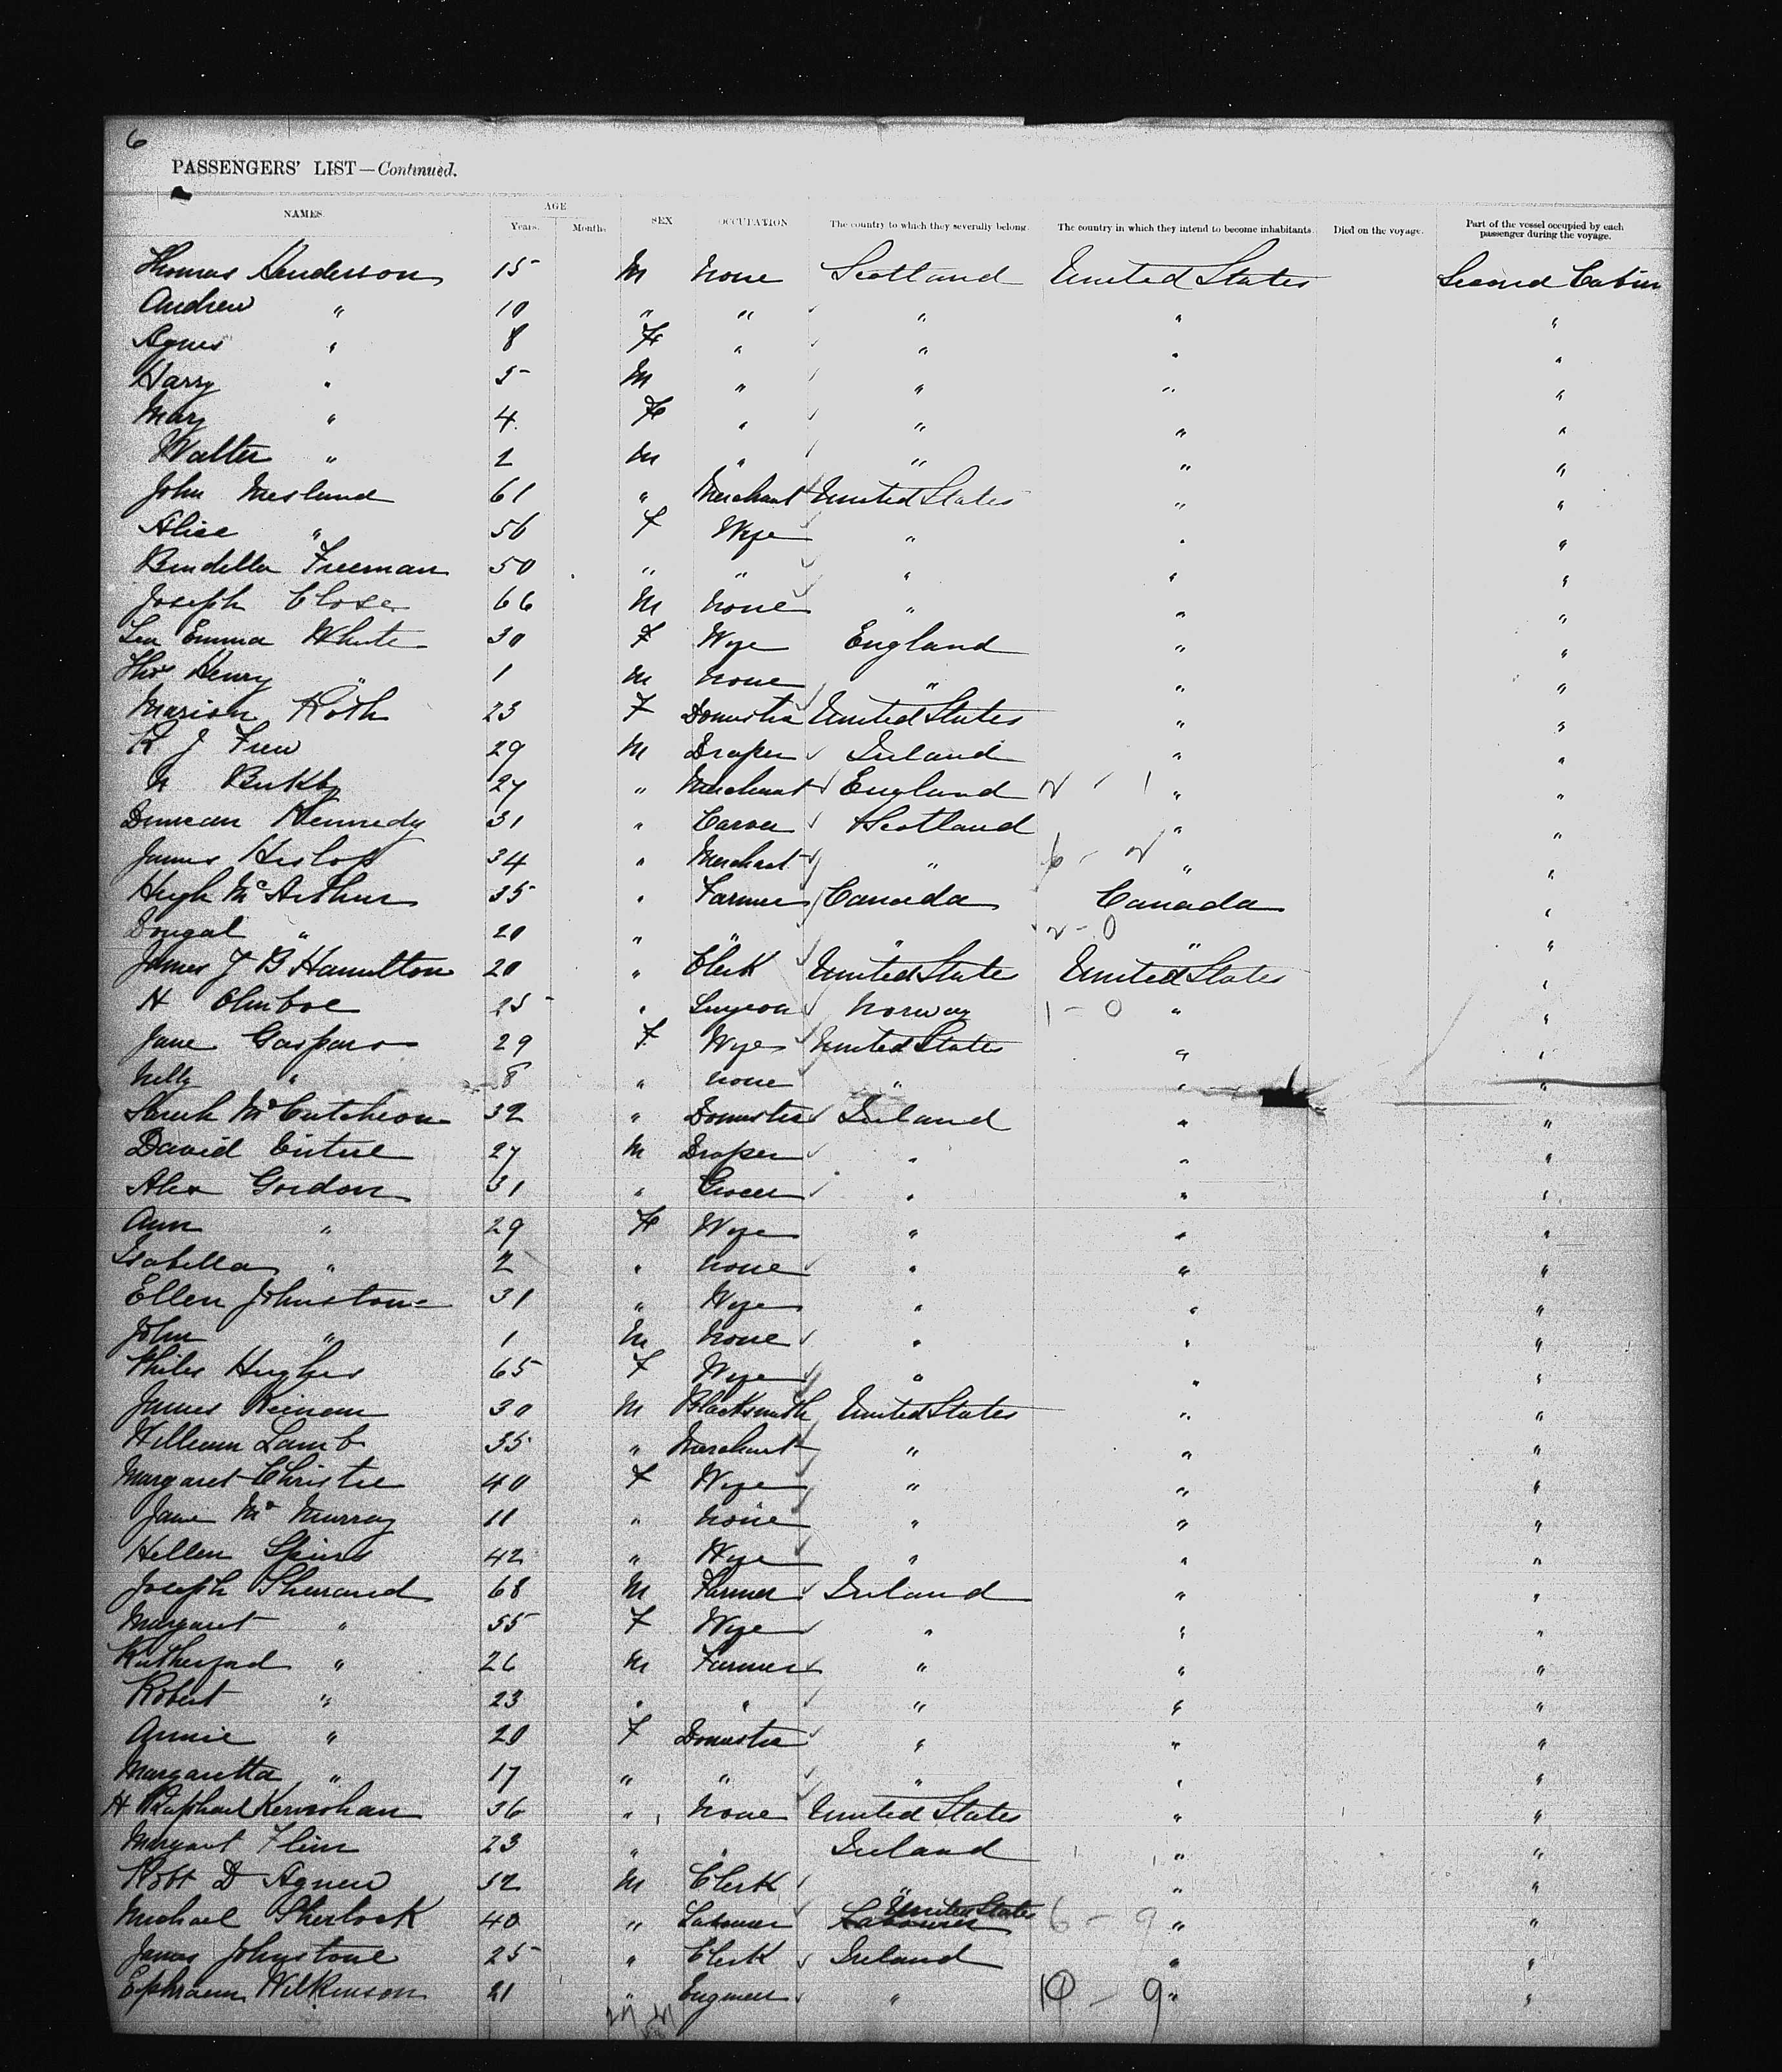 6
PASSENGERS' LIST—Continued.
NAMES. AGE Years. Months. SEX OCCUPATION The country to which they severally belong. The country in which they intend to become inhabitants. Died on the voyage. Part of the vessel occupied by each passenger during the voyage.
Thomas Henderson 15 M None Scotland United States Second Cabin
Andrew " 10 " " " " "
Agnes " 8 F " " " "
Harry " 5 M " " " "
Mary " 4 F " " " "
Walter " 2 M " " " "
John 61 " Merchant United States " "
Alice " 56 F Wife " " "
Freeman 50 " " " " "
Joseph Close 66 M None " " "
Emma White 30 F Wife England " "
Thos Henry " 1 M None " " "
Marion Roth 23 F Domestic United States " "
J Frew 29 M Draper Ireland " "
27 " Merchant England " "
Duncan Kennedy 31 " Carver Scotland " "
James Heslop 34 " Merchant " " "
Hugh McArthur 35 " Farmer Canada Canada "
Dougal " 20 " " " " "
James J B Hamilton 20 " Clerk United States United States "
H 25 " Surgeon Norway 1 - 0 " "
Jane Gasparo 29 F Wife United States " "
Nelly " 8 " None " " "
Sarah McCutcheon 32 " Domestic Ireland " "
David 27 M Draper " " "
Alex Gordon 31 " Grocer " " "
Ann " 29 F Wife " " "
Isabella " 2 " None " " "
Ellen Johnstone 31 " Wife " " "
John " 1 M None " " "
Hughes 65 F Wife " " "
James 30 M Blacksmith United States " "
William Lamb 35 " Merchant " " "
Margaret Christie 40 F Wife " " "
Jane McMurray 11 " None " " "
Hellen Spiers 42 " Wife " " "
Joseph Sherrard 68 M Farmer Ireland " "
Margaret " 55 F Wife " " "
Rutherford " 26 M Farmer " " "
Robert " 23 " " " " "
Annie " 20 F Domestic " " "
Margaretta " 17 " " " " "
H Raphael Kernohan 36 " None United States " "
Margaret Flinn 23 " " Ireland " "
Robt D Agnew 52 M Clerk " " "
Michael Sherlock 40 " Labourer Labourer United States 6 - 9 " "
James Johnstone 25 " Clerk Ireland " "
Ephraim Wilkinson 21 " Engineer " 9 " "